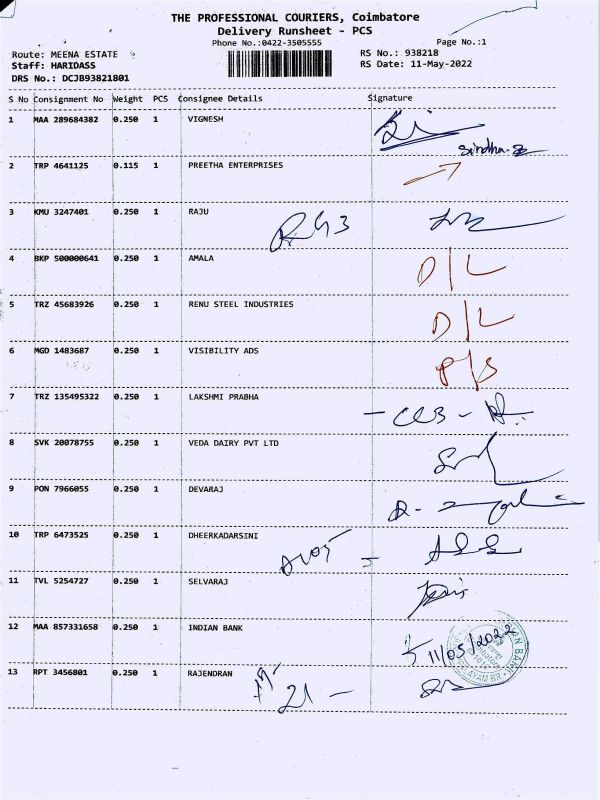 THE PROFESSIONAL COURIERS, Coimbatore
Delivery Runsheet - PCS
Phone No.:0422-3505555 Page No.:1
Route: MEENA ESTATE RS No.: 938218
Staff: HARIDASS RS Date: 11-May-2022
DRS No.: DCJB93821801
S No Consignment No Weight PCS Consignee Details Signature
1 MAA 289684382 0.250 1 VIGNESH
Sindhu
2 TRP 4641125 0.115 1 PREETHA ENTERPRISES
3 KMU 3247401 0.250 1 RAJU
4 BKP 500000641 0.250 1 AMALA D/L
5 TRZ 45683926 0.250 1 RENU STEEL INDUSTRIES D/L
6 MGD 1483687 0.250 1 VISIBILITY ADS P/S
7 TRZ 135495322 0.250 1 LAKSHMI PRABHA
8 SVK 20078755 0.250 1 VEDA DAIRY PVT LTD
9 PON 7966055 0.250 1 DEVARAJ
10 TRP 6473525 0.250 1 DHEERKADARSINI
11 TVL 5254727 0.250 1 SELVARAJ
12 MAA 857331658 0.250 1 INDIAN BANK 11/05/2022
13 RPT 3456801 0.250 1 RAJENDRAN
21 -